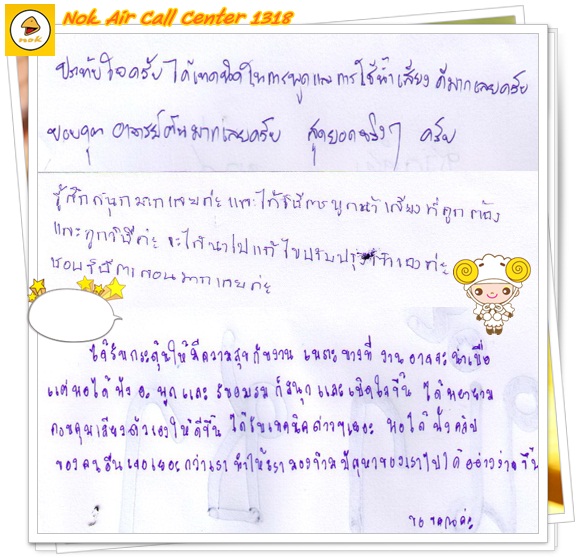 Nok Air Call Center 1318
nok
ประทับใจครับ ได้เทคนิคในการพูดและการใช้น้ำเสียง ดีมากเลยครับ
ขอบคุณ อาจารย์ต้นมากเลยครับ สุดยอดจริงๆ ครับ
รู้สึกสนุกมากเลยค่ะ และได้วิธีการพูดน้ำเสียงที่ถูกต้อง
และถูกวิธีค่ะ จะได้นำไปแก้ไขปรับปรุงตัวเองค่ะ
ชอบวิธีการสอนมากเลยค่ะ
ได้รับกระตุ้นให้มีความสุขกับงาน เพราะบางที่ งานอาจจะน่าเบื่อ
แต่พอได้ฟัง อ. พูดและ รับอบรม ก็สนุก และเปิดใจขึ้น ได้พยายาม
ควบคุมเสียงตัวเองให้ดีขึ้น ได้รับเทคนิคต่างๆเยอะ พอได้ฟังคลิป
ของคนอื่นเจอเยอะกว่าเรา ทำให้เรามองข้ามปัญหาของเราไปได้อย่างง่ายขึ้น
ขอบคุณค่ะ